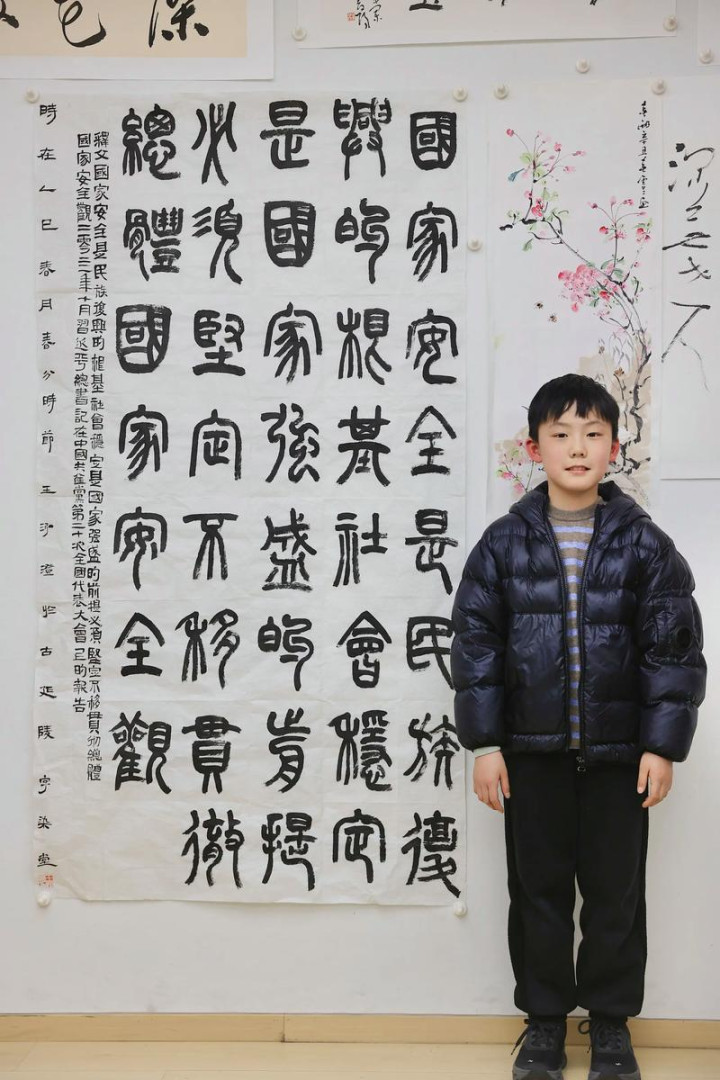 國家安全是民族復
興的根基社會穩定
是國家強盛的前提
必須堅定不移貫徹
總體國家安全觀
釋文國家安全是民族復興的根基社會穩定是國家強盛的前提必須堅定不移貫彻總體
國家安全觀二零二二年十月習近平總書記在中國共產黨第二十次全國代表大會上的報告
時在乙巳春月春分時節王澄於古延陵染堂